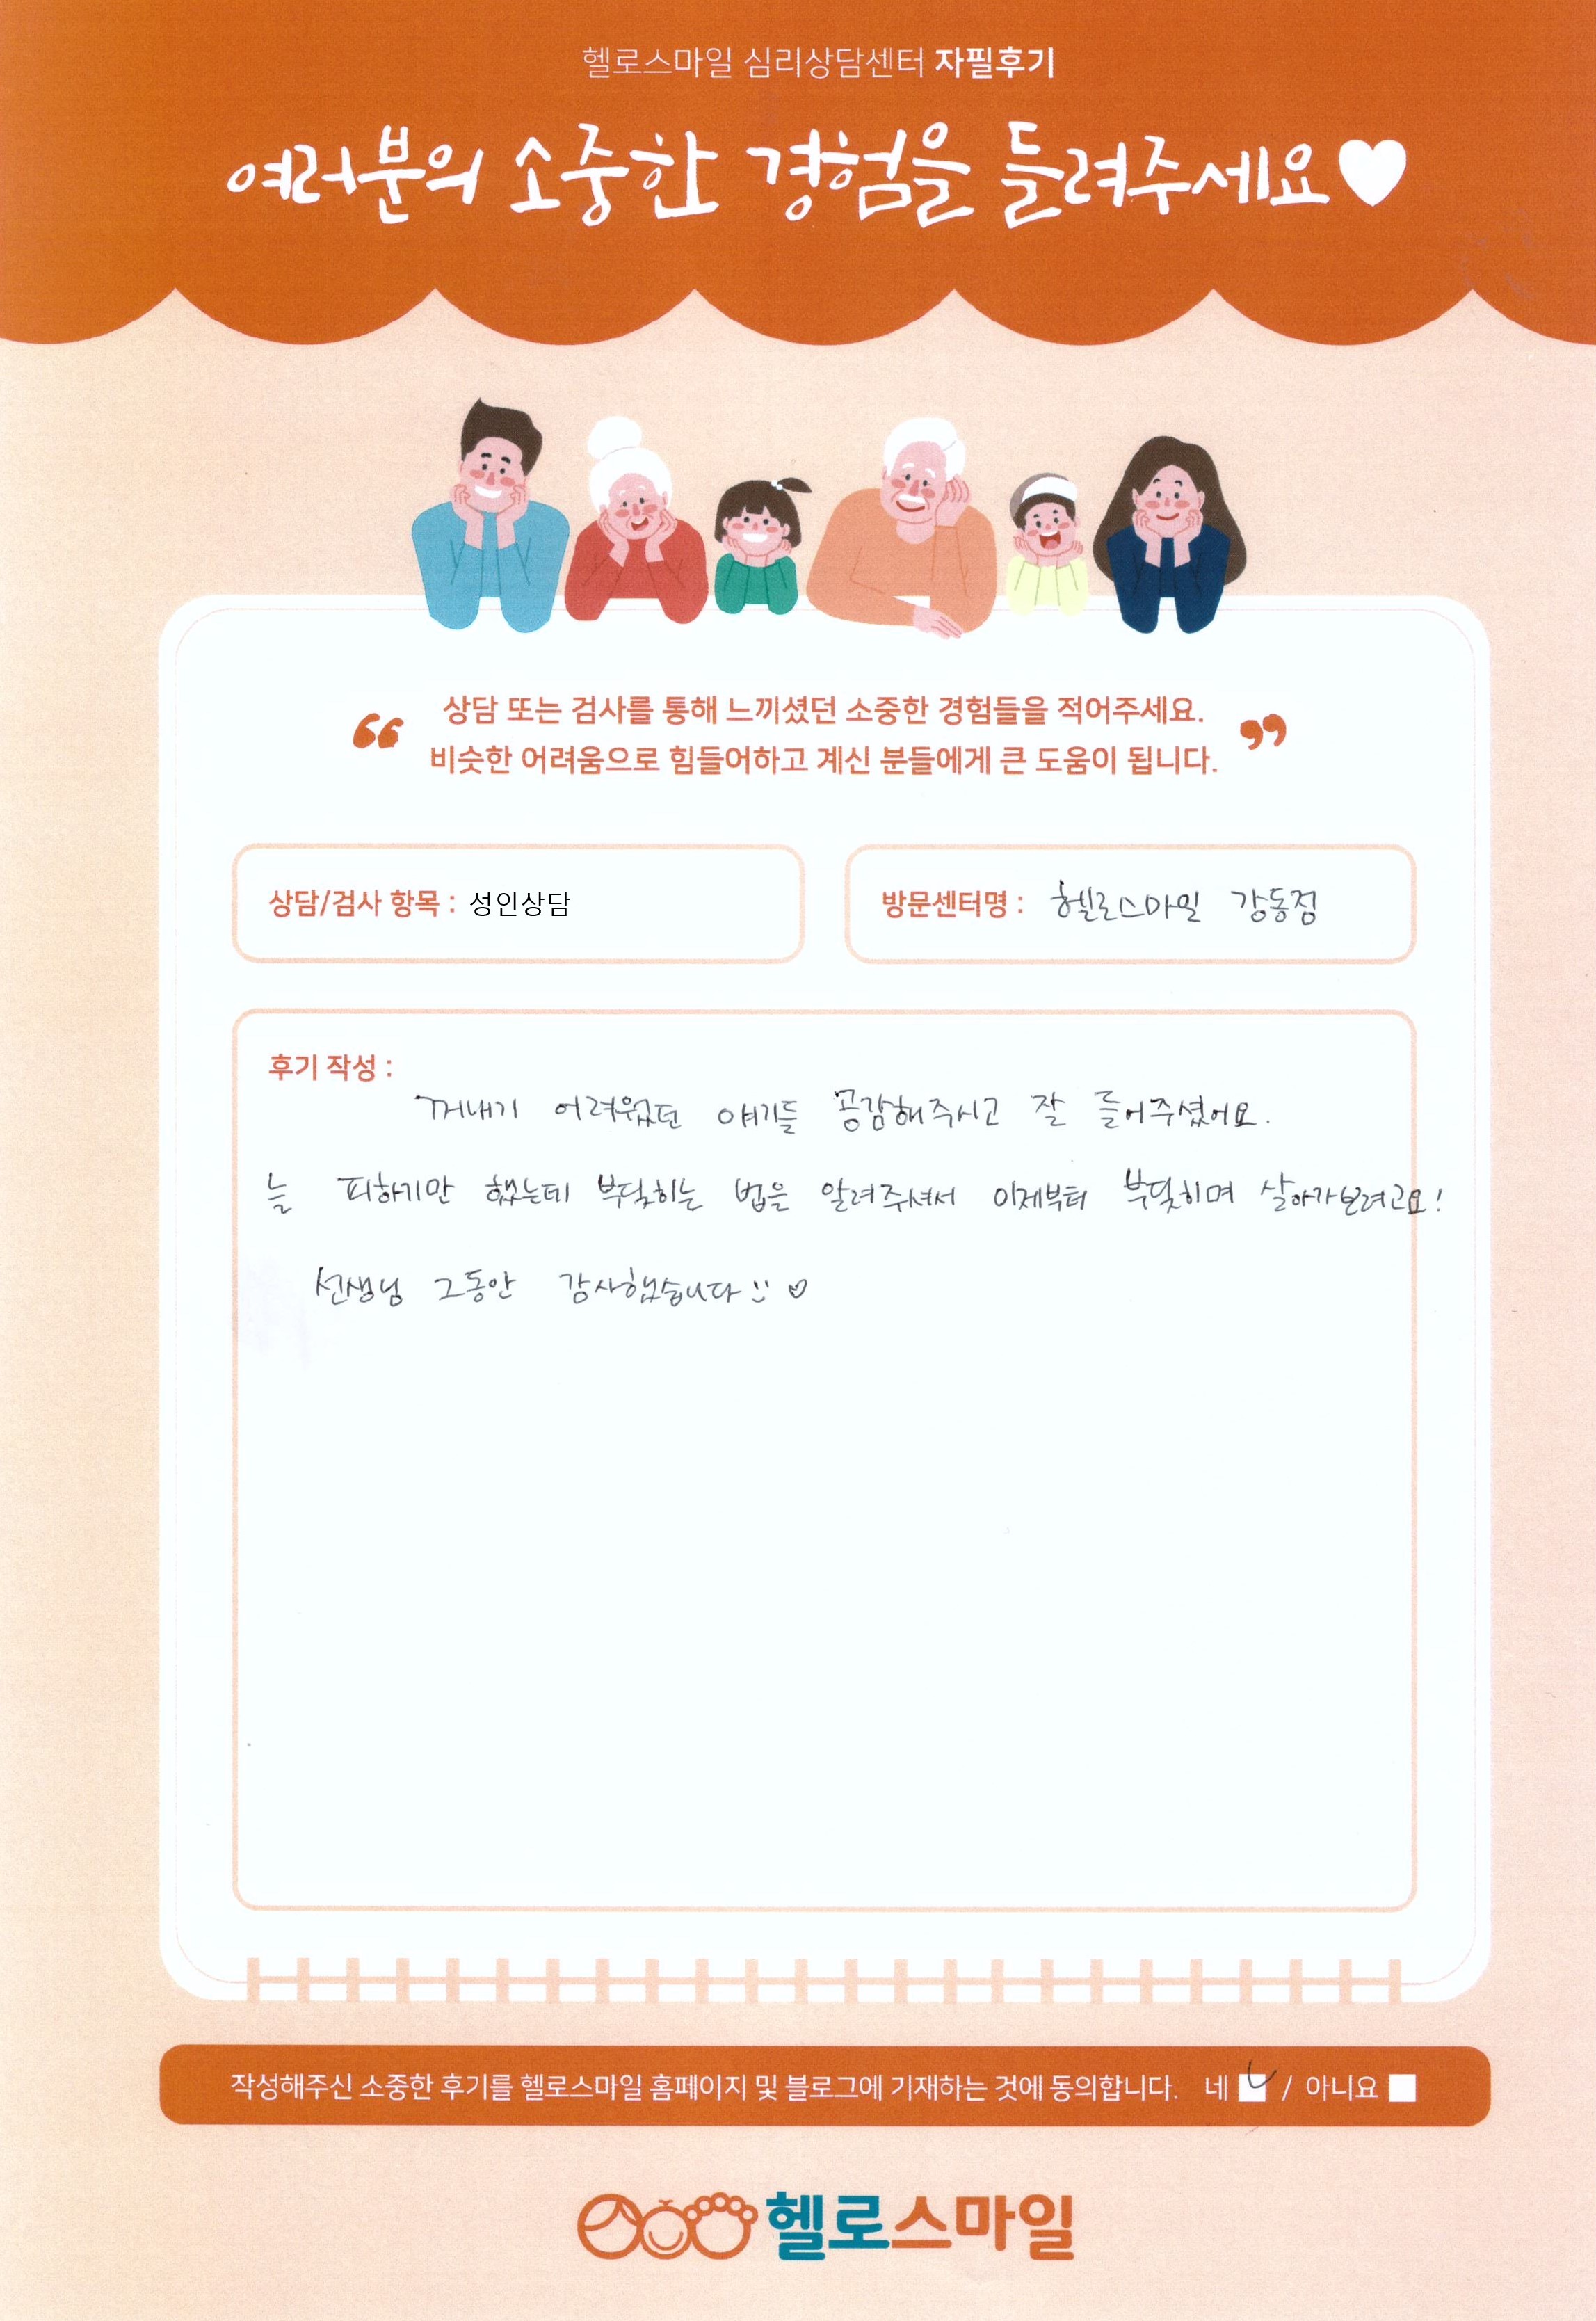 헬로스마일 심리상담센터 자필후기
여러분의 소중한 경험을 들려주세요♥
“ 상담 또는 검사를 통해 느끼셨던 소중한 경험들을 적어주세요.
비슷한 어려움으로 힘들어하고 계신 분들에게 큰 도움이 됩니다. ”
상담/검사 항목 : 성인상담
방문센터명 : 헬로스마일 강동점
후기 작성 :
꺼내기 어려웠던 얘기들 공감해주시고 잘 들어주셨어요.
늘 피하기만 했는데 부딪히는 법을 알려주셔서 이제부터 부딪히며 살아가보려고요!
선생님 그동안 감사했습니다 :) ♡
작성해주신 소중한 후기를 헬로스마일 홈페이지 및 블로그에 기재하는 것에 동의합니다. 네 ☑ / 아니요 □
헬로스마일